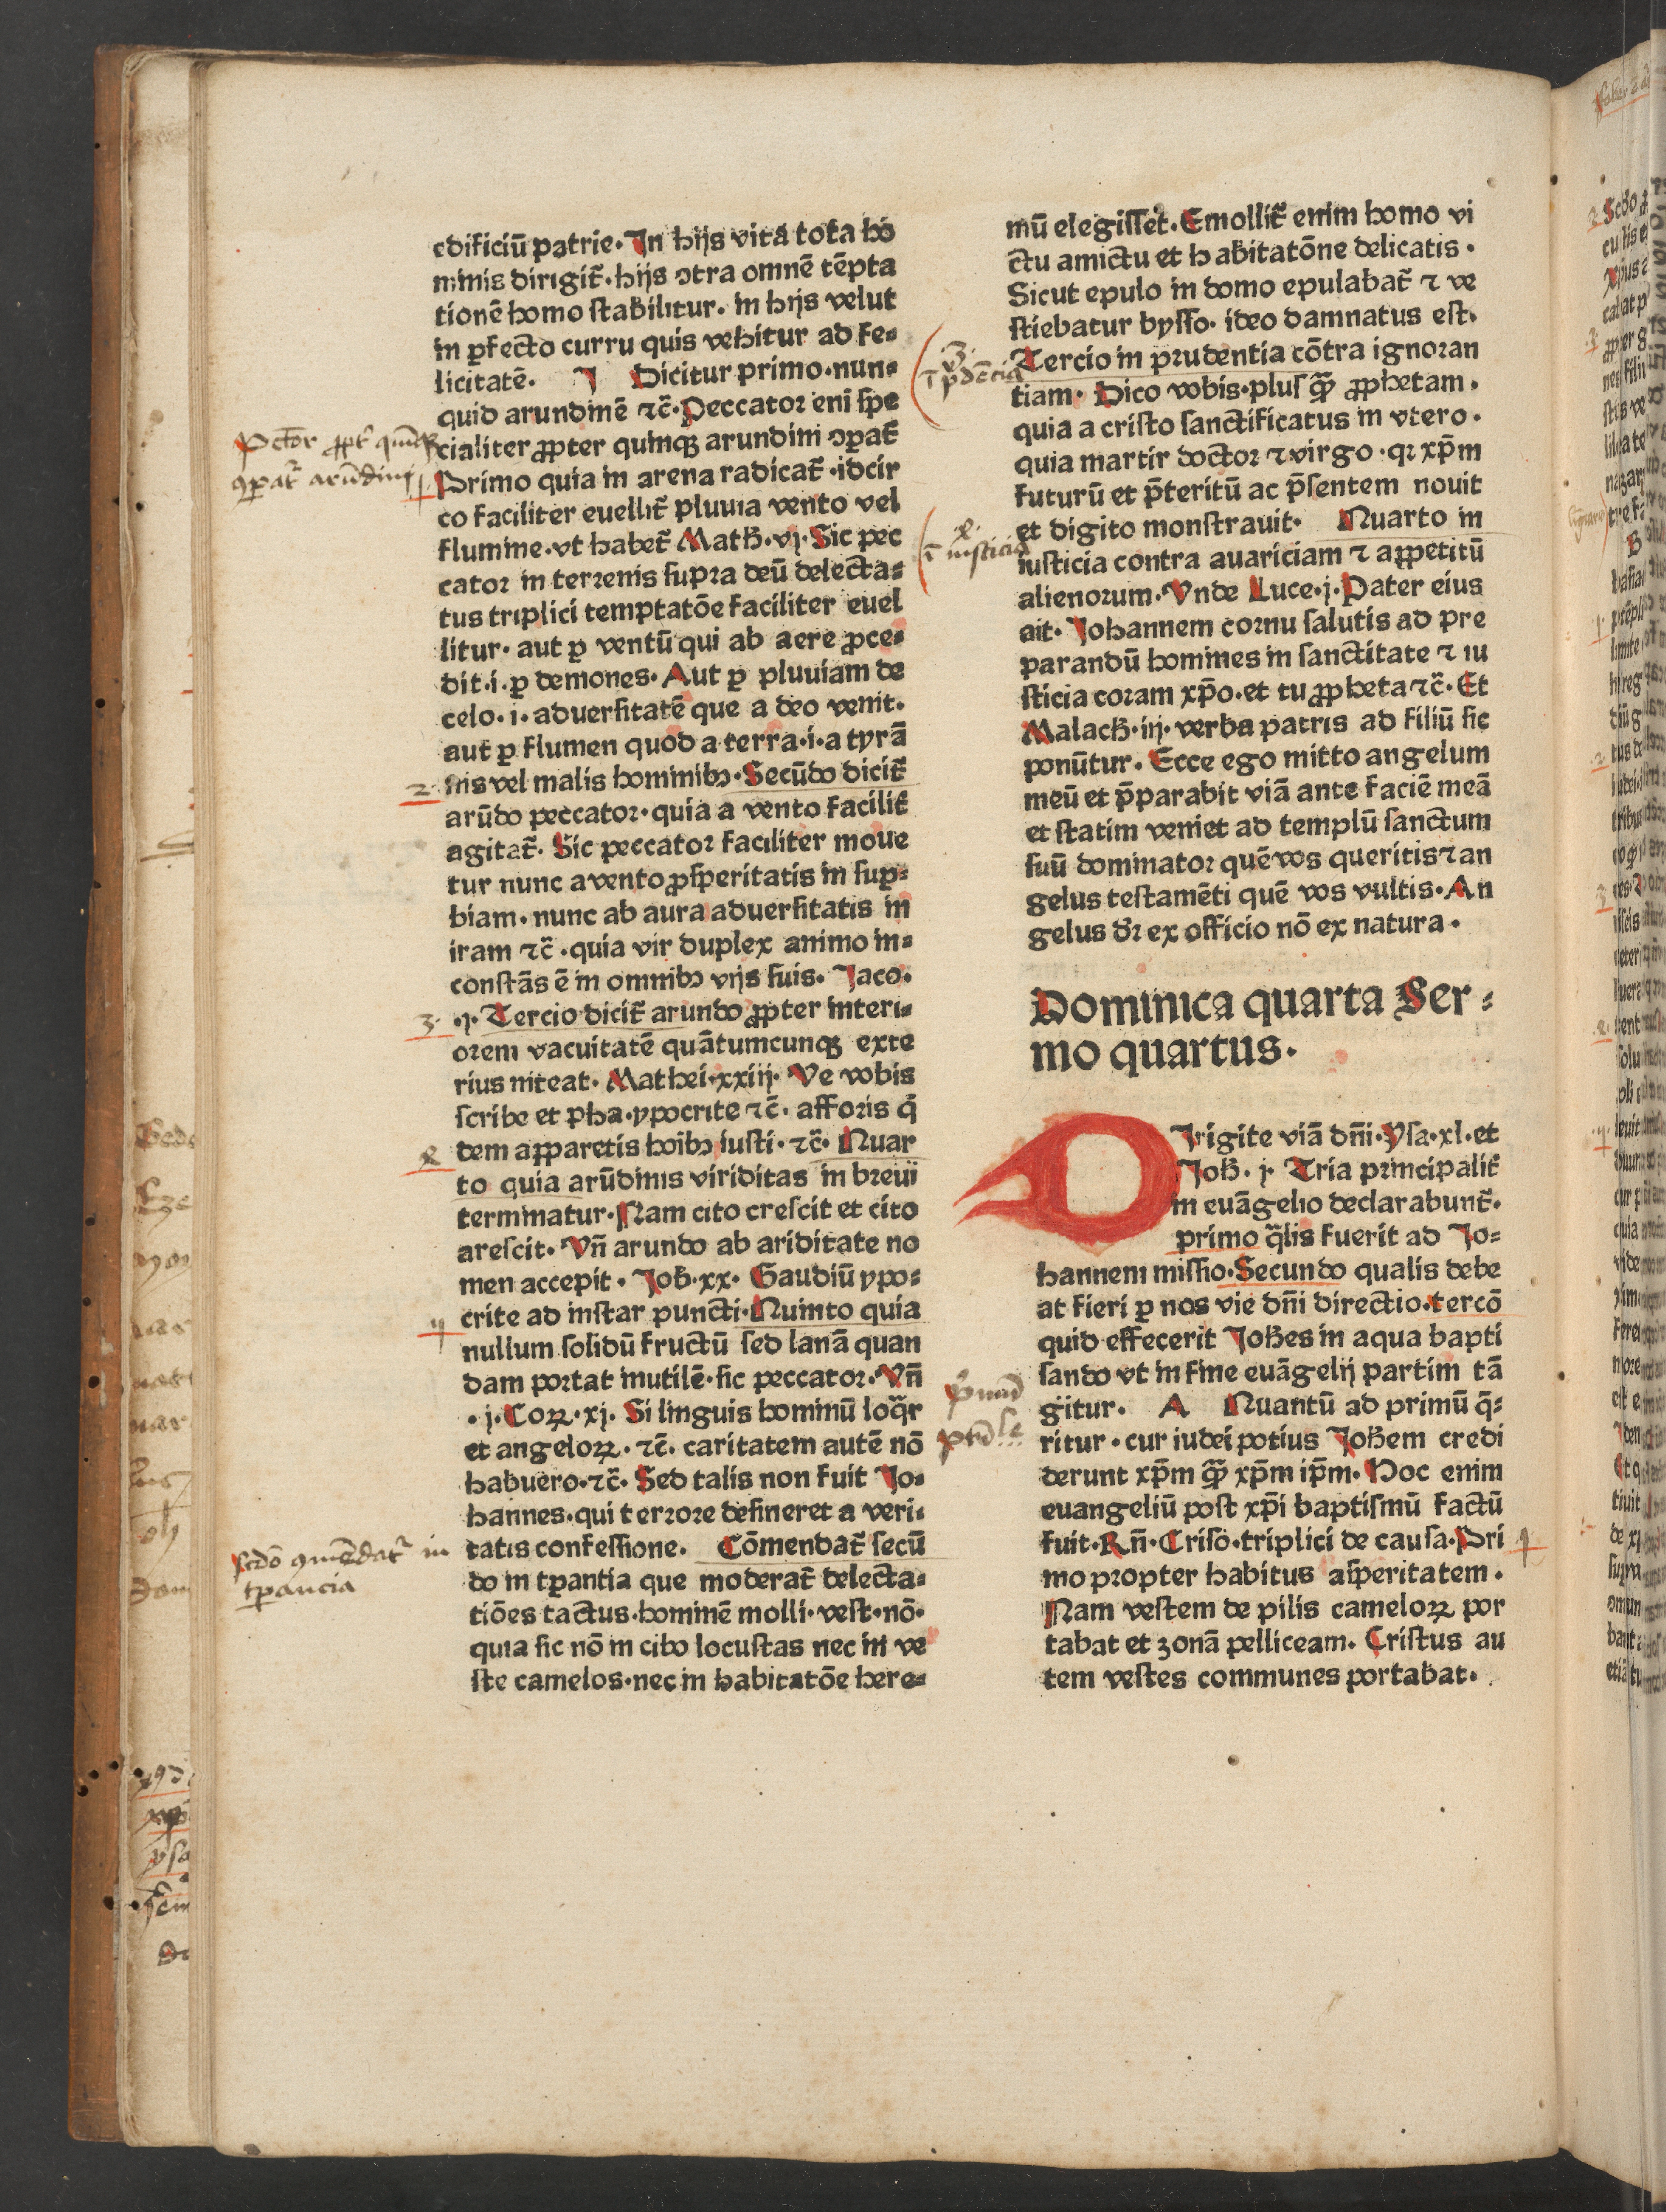 edificiū patrie. In hijs vita tota ho
minis dirigit̃. hijs ↄtra omnē tēpta
tionē homo stabilitur. in hijs velut
in ꝑfecto curru quis vehitur ad fe⸗
licitatē. I Dicitur primo. nun⸗
quid arundinē ⁊c̃. Peccator eni spe
cialiter ꝓpter quinqꝫ arundini ↄꝑat̃
Primo quia in arena radicat̃. idcir
co faciliter euellit̃ pluuia vento vel
flumine. vt habet̃ Math̄. vj. Sic pec
cator in terrenis supra deū delecta⸗
tus triplici temptatōe faciliter euel
litur. aut ꝑ ventū qui ab aere ꝓce⸗
dit. i. ꝑ demones. Aut ꝑ pluuiam de
celo. i. aduersitatē que a deo venit.
aut ꝑ flumen quod a terra. i. a tyrā
nis vel malis hominibꝫ. Secūdo dicit̃
arūdo peccator. quia a vento facilit̃
agitat̃. Sic peccator faciliter moue
tur nunc a vento ꝓsperitatis in suꝑ⸗
biam. nunc ab aura aduersitatis in
iram ⁊c̃. quia vir duplex animo in⸗
constās ē in omnibꝫ vijs suis. Jaco.
.j. Tercio dicit̃ arundo ꝓpter interi⸗
orem vacuitatē quātumcunqꝫ exte
rius niteat. Mathei. xxiij. Ve vobis
scribe et pha. ypocrite ⁊c̃. afforis q̇
dem apparetis hoibꝫ iusti. ⁊c̃. Quar
to quia arūdinis viriditas in breui
terminatur. Nam cito crescit et cito
arescit. Vn̄ arundo ab ariditate no
men accepit. Job̄. xx. Gaudiū ypo⸗
crite ad instar puncti. Quinto quia
nullum solidū fructū sed lanā quan
dam portat inutilē. sic peccator. Vn̄
.j. Coꝝ. xj. Si linguis hominū loq̃r
et angeloꝝ. ⁊c̃. caritatem autē nō
habuero. ⁊c̃. Sed talis non fuit Jo⸗
hannes. qui terrore desineret a veri⸗
tatis confessione. Cōmendat̃ secū
do in tꝑantia que moderat̃ delecta⸗
tiōes tactus. hominē molli. vest. nō.
quia sic nō in cibo locustas nec in ve
ste camelos. nec in habitatōe here⸗
mū elegisset. Emollit̃ enim homo vi
ctu amictu et habitatōne delicatis.
Sicut epulo in domo epulabat̃ ⁊ ve
stiebatur bysso. ideo damnatus est.
Tercio in prudentia cōtra ignoran
tiam. Dico vobis. plus q̃ꝫ ꝓphetam.
quia a cristo sanctificatus in vtero.
quia martir doctor ⁊ virgo. qꝛ xp̄m
futurū et p̄teritū ac p̄sentem nouit
et digito monstrauit. Quarto in
iusticia contra auariciam ⁊ appetitū
alienorum. Vnde Luce. j. Pater eius
ait. Johannem cornu salutis ad pre
parandū homines in sanctitate ⁊ iu
sticia coram xp̄o. et tu ꝓpheta ⁊c̃. Et
Malach̄. iij. verba patris ad filiū sic
ponūtur. Ecce ego mitto angelum
meū et p̄parabit viā ante faciē meā
et statim veniet ad templū sanctum
suū dominator quē vos queritis ⁊ an
gelus testamēti quē vos vultis. An
gelus dr̄ ex officio nō ex natura.
Dominica quarta Ser⸗
mo quartus.
DIrigite viā dn̄i. Ysa. xl. et
Joh̄. j. Tria principalit̃
in euāgelio declarabunt̃.
primo q̄lis fuerit ad Jo⸗
hannem missio. Secundo qualis debe
at fieri ꝑ nos vie dn̄i directio. tercō
quid effecerit Joh̄es in aqua bapti
sando vt in fine euāgelij partim tā
gitur. A Quantū ad primū q̄⸗
ritur. cur iudei potius Joh̄em credi
derunt xp̄m q̃ꝫ xp̄m ip̄m. Hoc enim
euangeliū post xp̄i baptismū factū
fuit. Rn̄. Criso. triplici de causa. Pri
mo propter habitus asperitatem.
Nam vestem de pilis cameloꝝ por
tabat et zonā pelliceam. Cristus au
tem vestes communes portabat.
Pctōr ꝓpt̃
ꝯꝑat̃ arūdini
2
3.
4
scdō ꝯmēdat̃ in
tꝑancia
3.
ī pdēcia
4.
ī iusticia